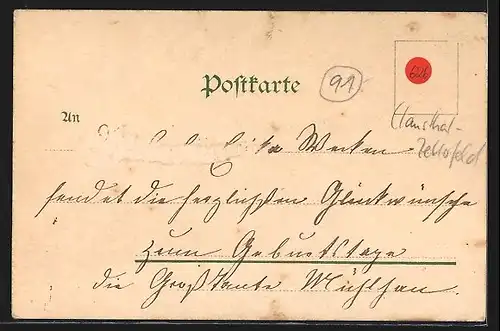 Postkarte
91
626
Clausthal-
Zellerfeld
An
Werken
sendet die herzlichsten Glückwünsche
zum Geburtstage
die Großtante Mühlhan.